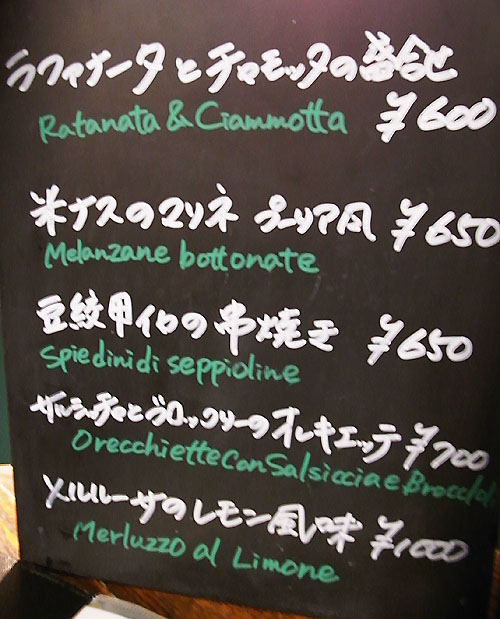 ラファナータとチャモッタの盛合せ
Ratanata & Ciammotta ¥600
米ナスのマリネ プーリア風 ¥650
Melanzane bottonate
豆紋甲イカの串焼き ¥650
Spiedini di seppioline
サルシッチャとブロッコリーのオレキエッテ ¥700
Orecchiette con Salsiccia e Broccoli
メルルーサのレモン風味 ¥1000
Merluzzo al Limone